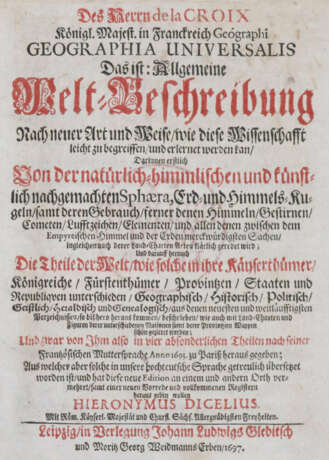 Des Herrn de la CROIX
Königl. Majest. in Franckreich Geógraphi
GEOGRAPHIA UNIVERSALIS
Das ist: Allgemeine
Welt-Beschreibung
Nach neuer Art und Weise/ wie diese Wissenschafft
leicht zu begreiffen/ und erlernet werden kan/
Darinnen erstlich
Von der natürlich-himmlischen und künst-
lich nachgemachten Sphæra, Erd- und Himmels-Ku-
geln/ samt deren Gebrauch/ ferner denen Himmeln/ Gestirnen/
Cometen/ Lufftzeichen/ Elementen/ und allen denen zwischen dem
Empyreischen Himmel und der Erden merckwürdigsten Sachen/
ingleichen nach derer Land-Charten Arten klärlich geredet wird;
Und darauf hernach
Die Theile der Welt/ wie solche in ihre Käyserthümer/
Königreiche/ Fürstenthümer/ Provintzen/ Staaten und
Republiqven unterschieden/ Geographisch/ Historisch/ Politisch/
Geistlich/ Heraldisch und Genealogisch/ aus denen neuesten und
Verzeichnissen/ so bißhero heraus kommen/ beschrieben/ wie auch mit Land-Charten und
Figuren derer unterschiedenen Nationen samt derer Provintzen Wappen
schön gezieret worden;
Und zwar von Ihm also in vier absonderlichen Theilen nach seiner
Frantzösischen Muttersprache Anno 1693. zu Pariß heraus gegeben;
Aus welcher aber solche in unsere hochteutsche Sprache getreulich übersetzet
worden ist/ und hat diese neue Edition an einem und andern Orth ver-
mehret/ samt einer neuen Vorrede und vollkommenen Registern
heraus geben wollen
HIERONYMUS DICELIUS.
Mit Röm. Käyserl. Majestät und Churf. Sächs. Allergnädigsten Freyheiten.
Leipzig/ in Verlegung Johann Ludwigs Gleditsch
und Moritz Georg Weidmanns Erben/ 1697.